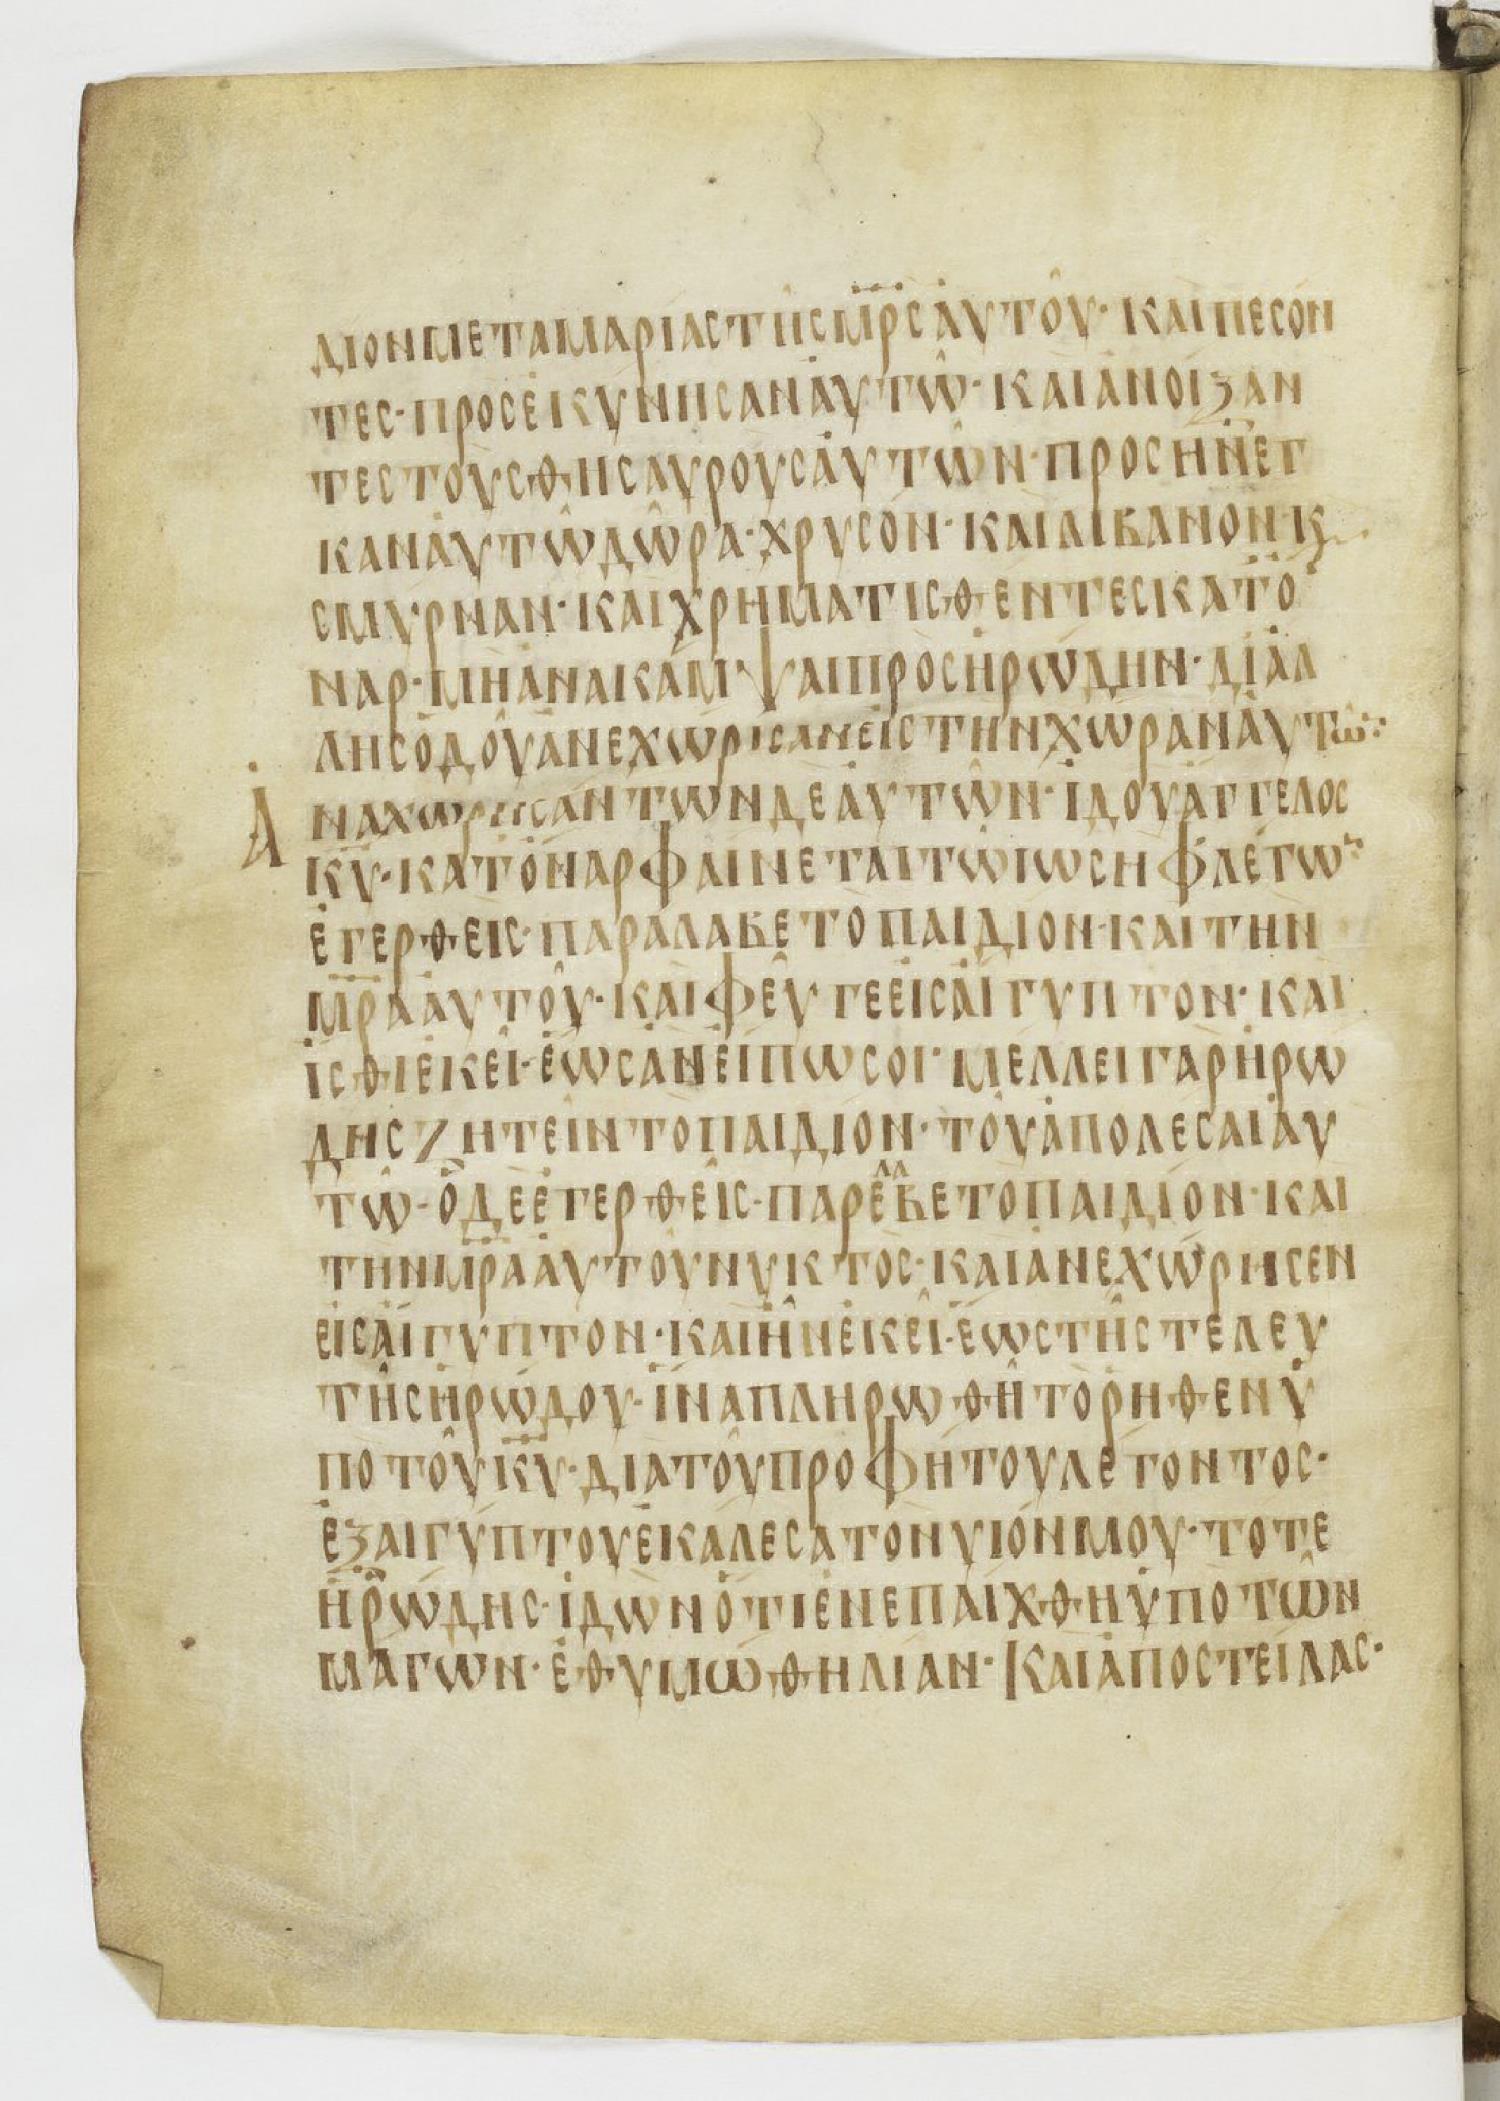 ΔΙΟΝΜΕΤΑΜΑΡΙΑΣΤΗΣΜΡ̅ΣΑΥΤΟΥ· ΚΑΙΠΕΣΟΝ
ΤΕΣ· ΠΡΟΣΕΚΥΝΗΣΑΝΑΥΤΩ· ΚΑΙΑΝΟΙΞΑΝ
ΤΕΣΤΟΥΣΘΗΣΑΥΡΟΥΣΑΥΤΩΝ· ΠΡΟΣΗΝΕΓ
ΚΑΝΑΥΤΩΔΩΡΑ· ΧΡΥΣΟΝ· ΚΑΙΛΙΒΑΝΟΝ· Κ
ΣΜΥΡΝΑΝ· ΚΑΙΧΡΗΜΑΤΙΣΘΕΝΤΕΣΚΑΤΟ
ΝΑΡ· ΜΗΑΝΑΚΑΜΨΑΙΠΡΟΣΗΡΩΔΗΝ· ΔΙΑΛ
ΛΗΣΟΔΟΥΑΝΕΧΩΡΙΣΑΝΕΙΣΤΗΝΧΩΡΑΝΑΥΤΩ:·
ΑΝΑΧΩΡΙΣΑΝΤΩΝΔΕΑΥΤΩΝ· ΙΔΟΥΑΓΓΕΛΟΣ
ΚΥ̅· ΚΑΤΟΝΑΡΦΑΙΝΕΤΑΙΤΩΙΩΣΗΦΛΕΓΩ
ΕΓΕΡΘΕΙΣ· ΠΑΡΑΛΑΒΕΤΟΠΑΙΔΙΟΝ· ΚΑΙΤΗΝ
ΜΡ̅ΑΑΥΤΟΥ· ΚΑΙΦΕΥΓΕΕΙΣΑΙΓΥΠΤΟΝ· ΚΑΙ
ΙΣΘΙΕΚΕΙ· ΕΩΣΑΝΕΙΠΩΣΟΙ· ΜΕΛΛΕΙΓΑΡΗΡΩ
ΔΗΣΖΗΤΕΙΝΤΟΠΑΙΔΙΟΝ· ΤΟΥΑΠΟΛΕΣΑΙΑΥ
ΤΩ· ΟΔΕΕΓΕΡΘΕΙΣ· ΠΑΡΕΛΑΒΕΤΟΠΑΙΔΙΟΝ· ΚΑΙ
ΤΗΝΜΡ̅ΑΑΥΤΟΥΝΥΚΤΟΣ· ΚΑΙΑΝΕΧΩΡΗΣΕΝ
ΕΙΣΑΙΓΥΠΤΟΝ· ΚΑΙΗΝΕΚΕΙ· ΕΩΣΤΗΣΤΕΛΕΥ
ΤΗΣΗΡΩΔΟΥ· ΙΝΑΠΛΗΡΩΘΗΤΟΡΗΘΕΝΥ
ΠΟΤΟΥΚΥ̅· ΔΙΑΤΟΥΠΡΟΦΗΤΟΥΛΕΓΟΝΤΟΣ·
ΕΞΑΙΓΥΠΤΟΥΕΚΑΛΕΣΑΤΟΝΥΙΟΝΜΟΥ· ΤΟΤΕ
ΗΡΩΔΗΣ· ΙΔΩΝΟΤΙΕΝΕΠΑΙΧΘΗΥΠΟΤΩΝ
ΜΑΓΩΝ· ΕΘΥΜΩΘΗΛΙΑΝ· ΚΑΙΑΠΟΣΤΕΙΛΑΣ·